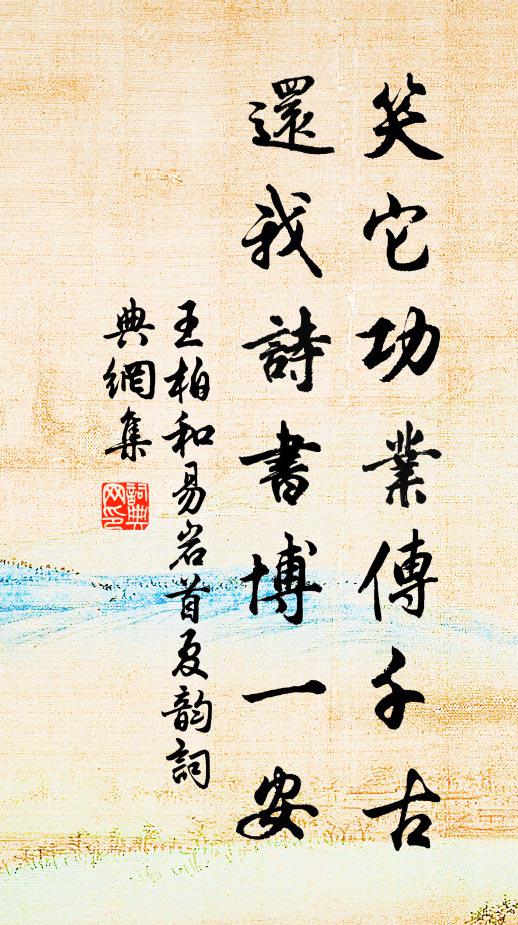 笑它功業傳千古
還我詩書博一安
王柏和易岩首夏韵詞
典網集
詞典
网印